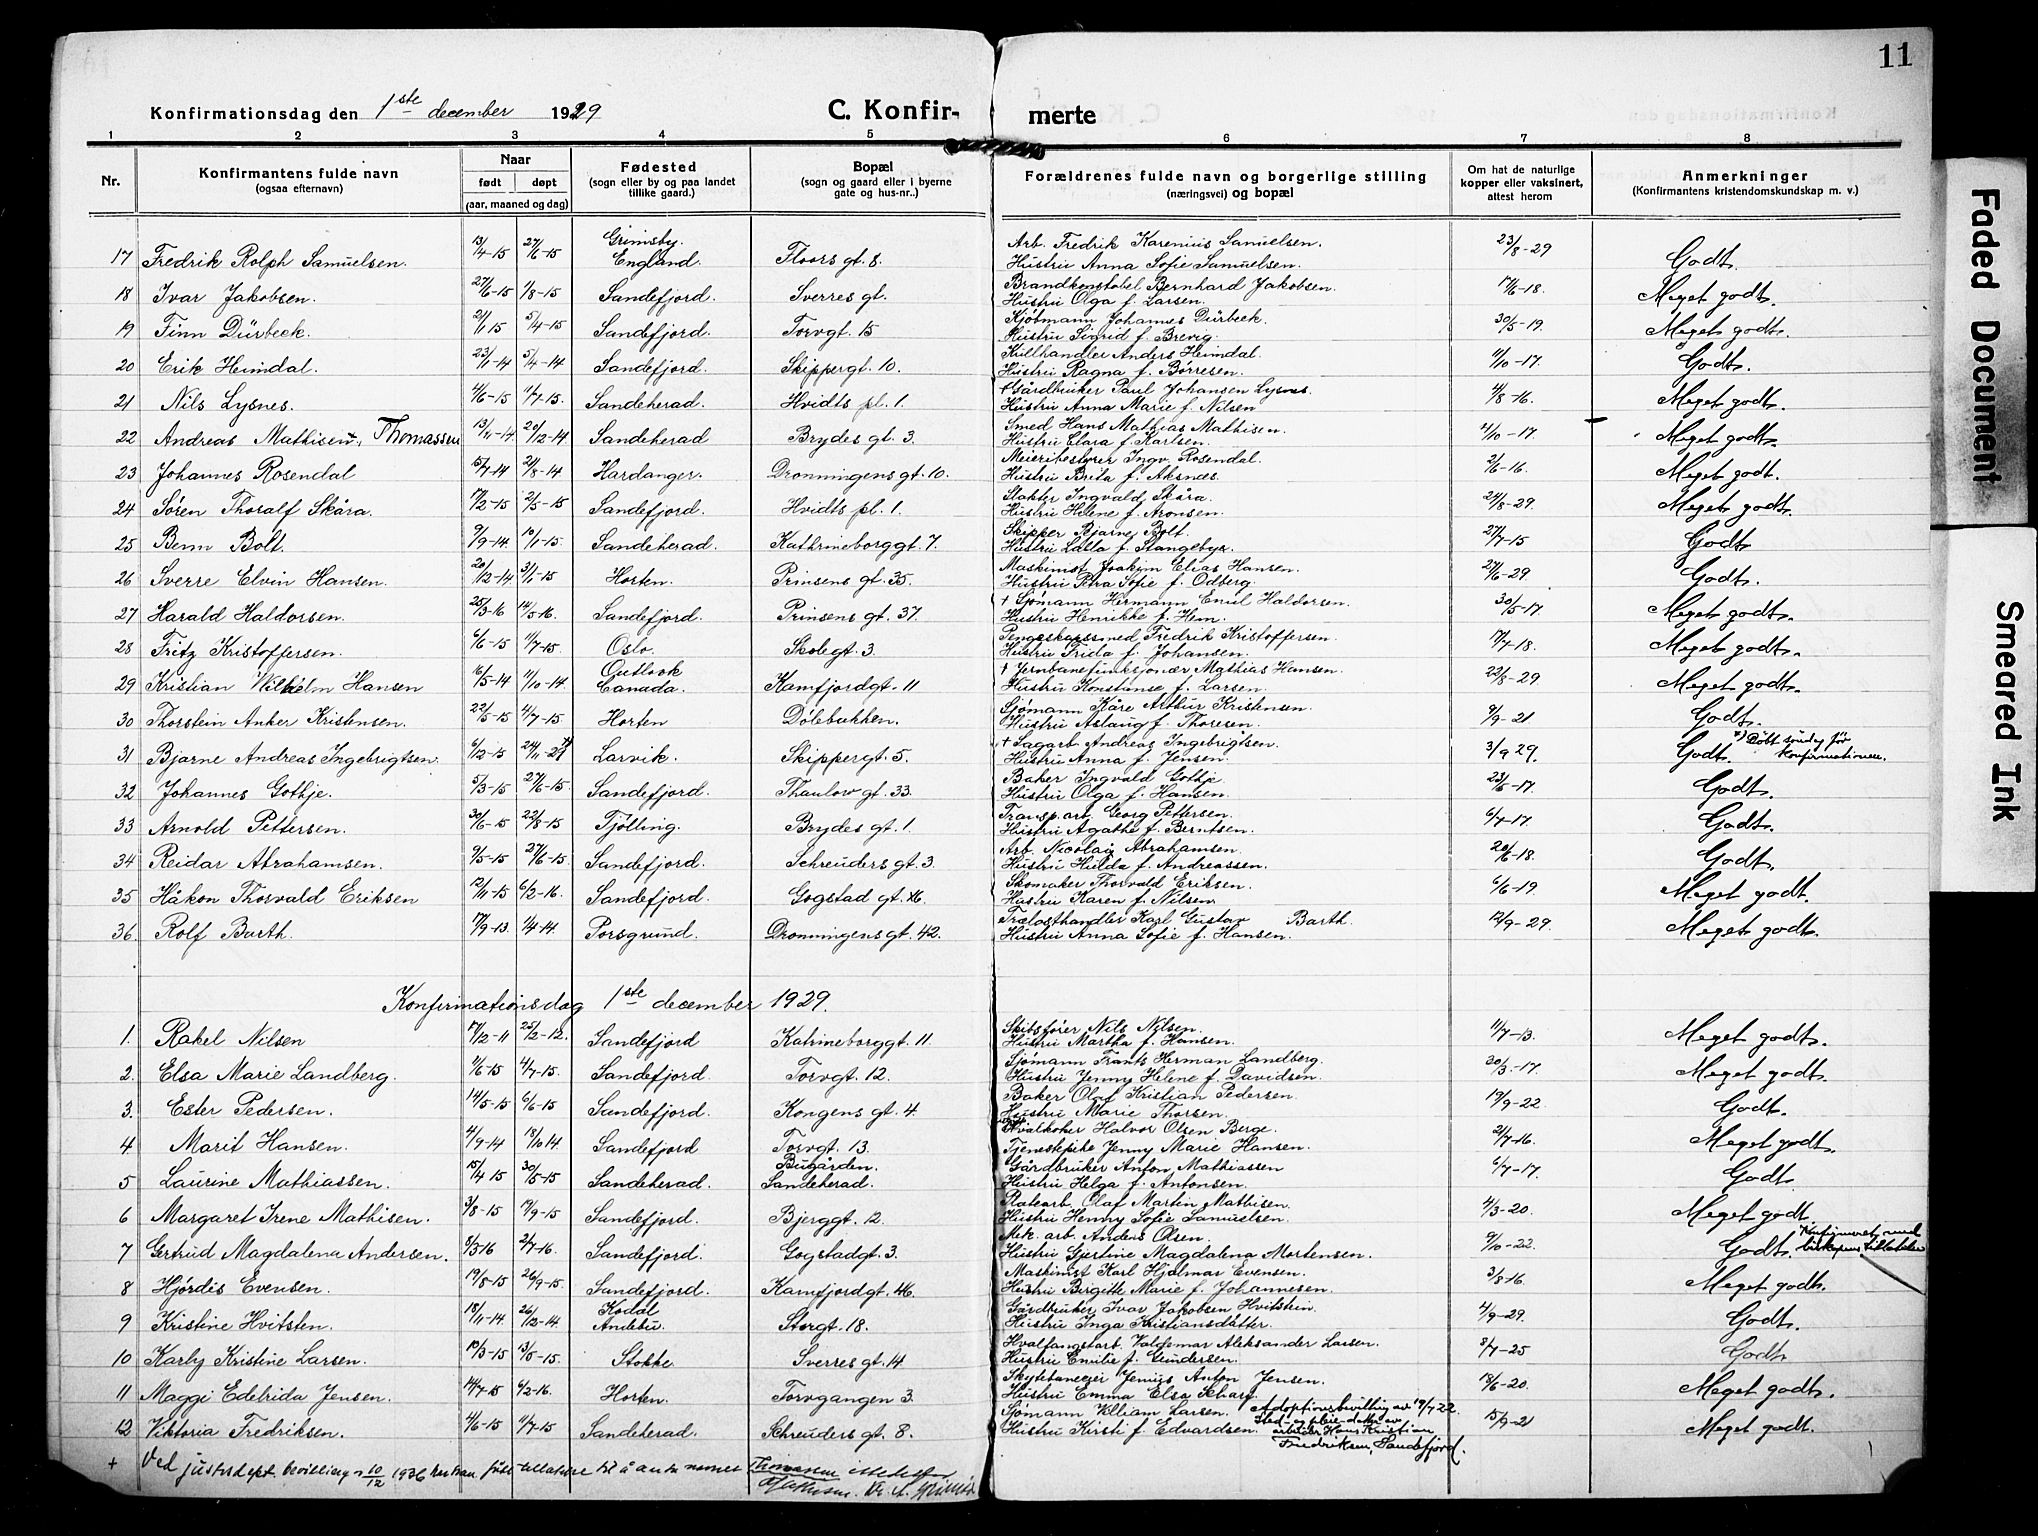 11
Konfirmationsdag den 1ste december 1929
C. Konfir- merte
1 2 3 4 5 6 7 8
Nr.
Konfirmantens fulde navn
(ogsaa efternavn)
Naar
født døpt
(aar, maaned og dag)
Fødested
(sogn eller by og paa landet
tillike gaard.)
Bopæl
(sogn og gaard eller i byerne
gate og hus-nr..)
Forældrenes fulde navn og borgerlige stilling
(næringsvei) og bopæl
Om hat de naturlige
kopper eller vaksinert,
attest herom
Anmerkninger
(Konfirmantens kristendomskundskap m. v.)
17 Fredrik Rolph Samuelsen. 13/4-15 27/6-15 Grimsby. England. Floors gt. 8. Arb. Fredrik Karenius Samuelsen. Hustru Anna Sofie Samuelsen. 23/8-29 Godt.
18 Ivar Jakobsen. 27/6-15 1/8-15 Sandefjord. Sverres gt. Brandkonstabel Bernhard Jakobsen. Hustru Olga f. Larsen. 17/6-18. Meget godt.
19 Finn Dürbeck. 21/1 15 5/4-15 Sandefjord. Torvgt. 15 Kjøbmann Johannes Dürbeck. Hustru Sigrid f. Brevig. 30/5-19. Meget godt.
20 Erik Heimdal. 23/1-14 5/4-14 Sandefjord. Skippergt. 10. Kullhandler Anders Heimdal. Hustru Ragna f. Børresen. 11/10-17. Godt.
21 Nils Lysnes. 4/6-15 11/7-15. Sandeherad. Hvidts pl. 1. † Gårdbruker Paul Johansen Lysnes. Hustru Anna Marie f. Nilsen 4/8-16. Meget godt.
22 Andreas Mathisen, Thomassen 13/11-14 20/12-14 Sandeherad Brydes gt. 3. Smed Hans Mathias Mathisen. Hustru Clara f. Karlsen. 4/10-17. Meget godt.
23 Johannes Rosendal 15/7-14 2/8-14 Hardanger. Dronningens gt. 10. Meieribestyrer Ingv. Rosendal. Hustru Brita f. Aksnes. 2/6-16. Meget godt.
24 Søren Thoralf Skåra. 17/2-15 2/5-15 Sandefjord. Hvidts pl. 1. Slakter Ingvald Skåra. Hustru Helene f. Aronsen. 24/8-29. Meget godt.
25 Benn Bolt. 9/9-14. 10/1-15. Sandeherad. Kathrineborggt. 7. Skipper Bjarne Bolt. Hustru Lalla f. Stangebye. 27/7-15 Godt
26 Sverre Elvin Hansen. 20/12-14 31/1-15 Horten. Prinsens gt. 35. Maskinist Joakim Elias Hansen. Hustru Petra Sofie f. Odberg. 27/6-29. Godt.
27 Harald Haldorsen. 25/3-16 14/5-16 Sandefjord. Prinsens gt. 37. † Sjømann Hermann Emil Haldorsen. Hustru Henrikke f. Hem. 30/5-17 Meget godt.
28 Fritz Kristoffersen. 6/6-15 11/7-15. Oslo. Skolegt. 3. Pengeskapssmed Fredrik Kristoffersen. Hustru Frida f. Johansen. 17/7-18. Meget godt.
29 Kristian Wilhelm Hansen 16/5-14 11/10-14. Outlook Canada. Kamfjordgt. 11 † Jernbanefunksjonær Mathias Hansen. Hustru Konstanse f. Larsen. 22/8-29 Meget godt.
30 Thorstein Anker Kristensen. 22/5-15 4/7-15. Horten Dølebakken. Sjømann Kåre Arthur Kristensen. Hustru Aslaug f. Thoresen. 9/9-21 Godt.
31 Bjarne Andreas Ingebrigtsen. 6/12-15 24/11-29 *) Larvik. Skippergt. 5. † Sagarb. Andreas Ingebrigtsen. Hustru Anna f. Jensen. 3/9 29. Godt. *) Døbt søndag før konfirmationen.
32 Johannes Gothje. 5/3-15 27/6-15. Sandefjord. Thaulow gt. 33. Baker Ingvald Gothje. Hustru Olga f. Hansen. 23/6-17. Godt.
33 Arnold Pettersen. 30/6-15 22/8-15 Tjølling. Brydes gt. 1. Transp.arb. Georg Pettersen. Hustru Agathe f. Berntsen. 6/7-17. Godt.
34 Reidar Abrahamsen. 9/5-15 27/6-15. Sandefjord. Schreuders gt. 3. Arb. Nicolai Abrahamsen. Hustru Hulda f. Andreassen. 20/6-18. Godt.
35 Håkon Thorvald Eriksen 12/11-15 6/2-16. Sandefjord. Gogstad gt. 16. Skomaker Thorvald Eriksen. Hustru Karen f. Nilsen. 6/6-19. Meget godt.
36. Rolf Barth. 17/9-13. 1/4-14. Porsgrund. Dronningens gt. 42. Trælasthandler Karl Gustav Barth. Hustru Anna Sofie f. Hansen. 12/9-29. Meget godt.
Konfirmationsdag 1ste december 1929.
1. Rakel Nilsen 17/12-11 25/2-12. Sandefjord Katrineborggt. 11. Skibsfører Nils Nilsen. Hustru Martha f. Hansen. 11/7-13. Meget godt.
2. Elsa Marie Landberg. 11/6-15 4/7-15. Sandefjord. Torvgt. 12. Sjømann Frants Herman Landberg. Hustru Jenny Helene f. Davidsen. 30/3-17. Meget godt.
3. Ester Pedersen. 14/5-15 6/6-15 Sandefjord. Kongens gt. 4 Baker Olaf Kristian Pedersen. Hustru Marie Thorsen. 19/9-22. Godt.
4 Marit Hansen. 4/9-14 18/10 14. Sandefjord Torvgt. 13. Hvalkoker Halvor Olsen Berge. Tjenestpike Jenny Marie Hansen. 2/7-16. Meget godt.
5 Laurine Mathiassen. 15/4 15 30/5-15 Sandeherad. Bugården. Sandeherad. Gårdbruker Anton Mathiassen Hustru Helga f. Antonsen. 6/7-17. Godt
6 Margaret Irene Mathisen. 3/8-15 19/9-15 Sandefjord. Bjerggt. 12. Platearb. Olaf Martin Mathisen. Hustru Henny Sofie Samuelsen. 4/3-20. Meget godt
7 Gertrud Magdalena Andersen. 8/3-16 2/7-16. Sandefjord. Gogstadgt. 3. Mek. arb. Anders Olsen. Hustru Gjertine Magdalena Mortensen. 9/10-22. Godt. Konfirmeret med biskopens tillatelse
8 Hjørdis Evensen. 19/8-15 26/9-15. Sandefjord. Kamfjordgt. 46. Maskinist Karl Hjalmar Evensen. Hustru Birgitte Marie f. Johannesen. 3/8-16. Meget godt.
9 Kristine Hvitsten. 18/11-14 26/12-14. Kodal Andebu. Storgt. 18. Gårdbruker Ivar Jakobsen Hvitstein. Hustru Inga Kristiansdatter. 4/9-29. Godt.
10 Karly Kristine Larsen. 19/3-15 13/5-15. Stokke. Sverres gt. 14 Hvalfangstarb. Valdemar Aleksander Larsen. Hustru Emilie f. Gundersen. 8/7-25 Godt
11 Maggi Edelrida Jensen. 14/7-15 6/2-16. Horten. Torvgangen 3. Skytebaneeier Jenius Anton Jensen. Hustru Emma Elsa Scharf. 18/6-20. Meget godt.
12 Viktoria Fredriksen. 4/6-15 11/7-15 Sandeherad. Schreuders gt. 8. Sjømann William Larsen. Hustru Kirsti f. Edvardsen. Adoptionsbevilling av 19/7 22. Sted- og pleie-datter av arbeider Hans Kristian Fredriksen, Sandefjord. 15/9-21 Meget godt.
+ Ved justisdept. bevilling 10/12 1936 har han fått tillatelse til å anta navnet Thomassen istedetfor Mathisen.
Faded Document
Smeared Ink